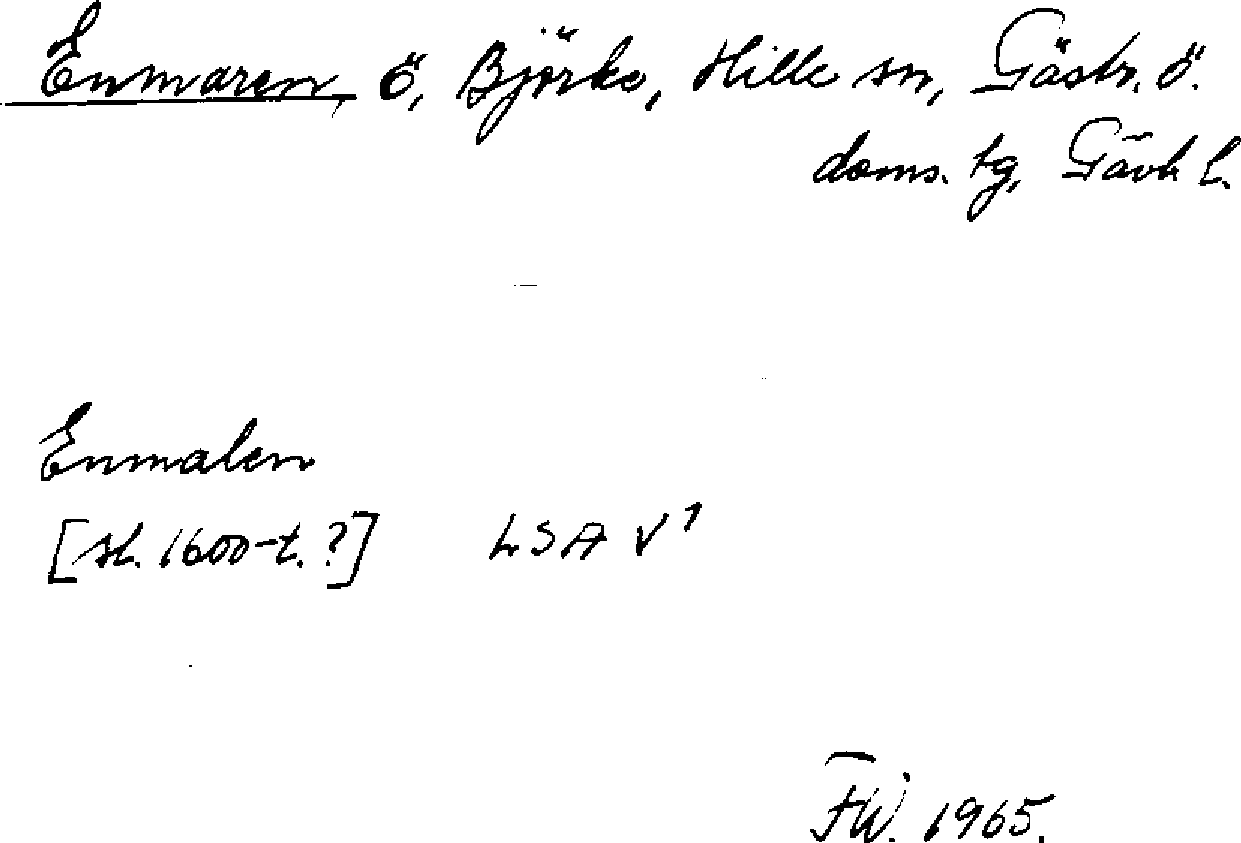 Enmaren, ö, Björke, Hille sn, Gästr. ö.
doms. tg, Gävb l.
Enmalen
[sl. 1600-t. ?] LSA V 1
FW. 1965.